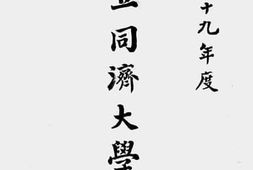 十九年度
立同濟大學